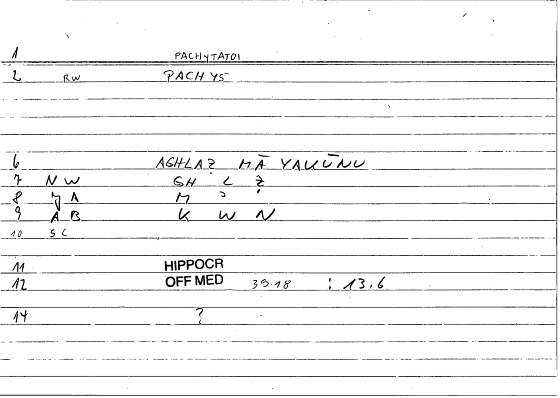 1 PACHYTATOI
2 RW PACHYS
6 AGHLAẒ MĀ YAKŪNU
7 NW GH L Ẓ
8 M
9 AB K W N
10 SC
11 HIPPOCR
12 OFF MED 39.18 : 13.6
14 ?